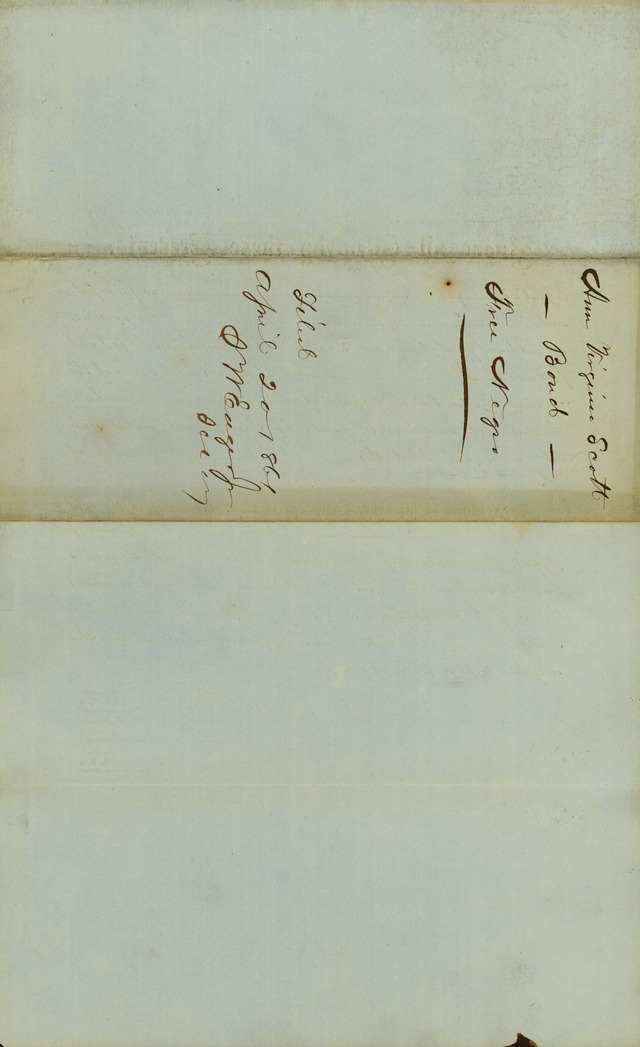 Ann Virginia Scott
— Bond —
Free Negro
Filed
April 20 1861